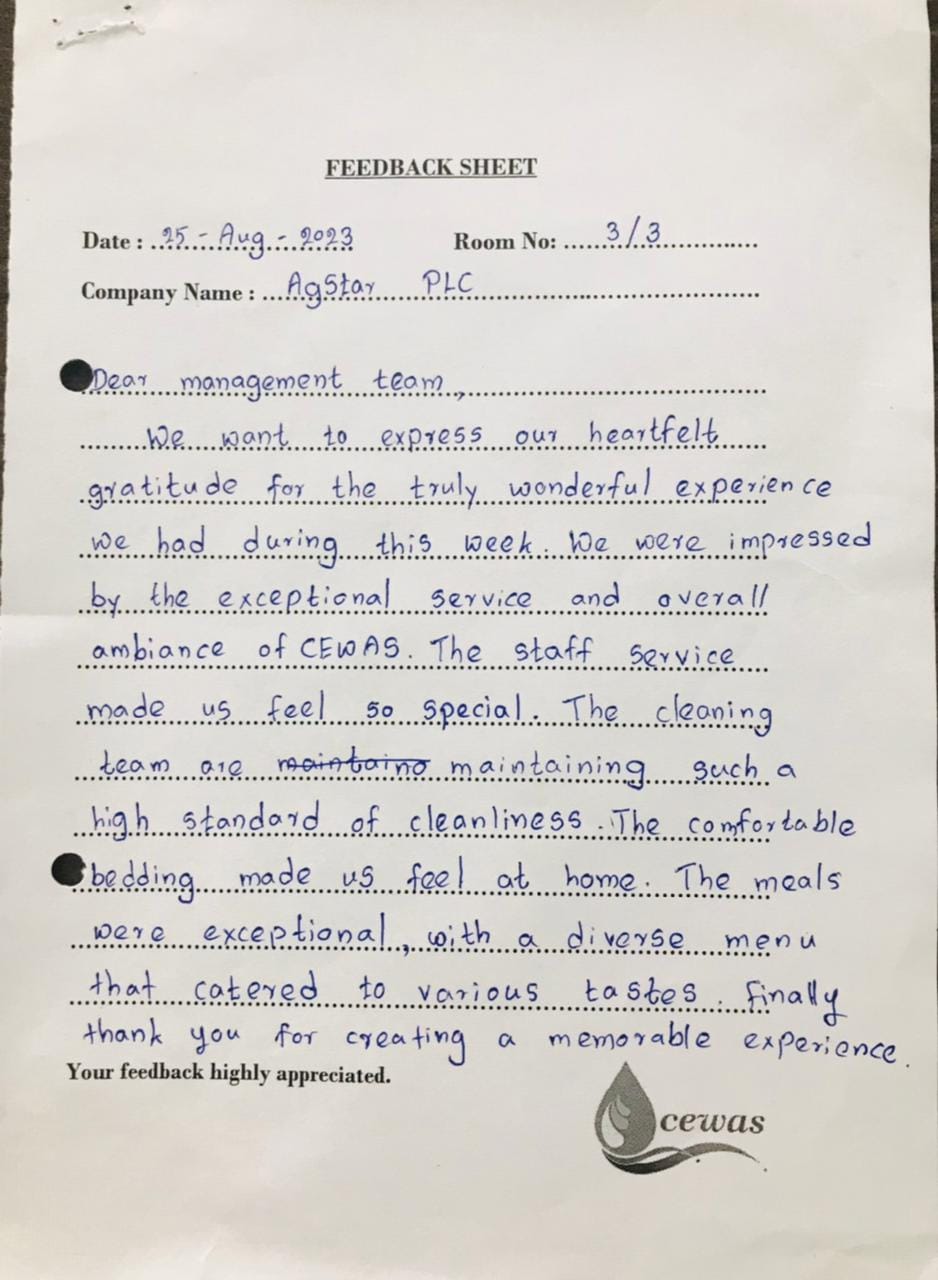 FEEDBACK SHEET
Date : 25 - Aug - 2023 Room No: 3/3
Company Name : AgStar PLC
Dear management team,
We want to express our heartfelt
gratitude for the truly wonderful experience
we had during this week. We were impressed
by the exceptional service and overall
ambiance of CEWAS. The staff service
made us feel so special. The cleaning
team are maintaino maintaining such a
high standard of cleanliness. The comfortable
bedding made us feel at home. The meals
were exceptional, with a diverse menu
that catered to various tastes. Finally
thank you for creating a memorable experience.
Your feedback highly appreciated.
cewas